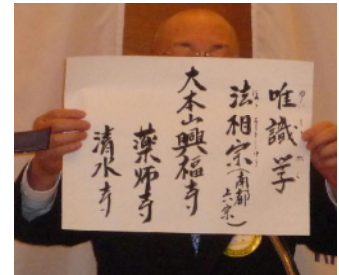 唯識学
法相宗(南都六宗)
大本山興福寺
薬師寺
清水寺